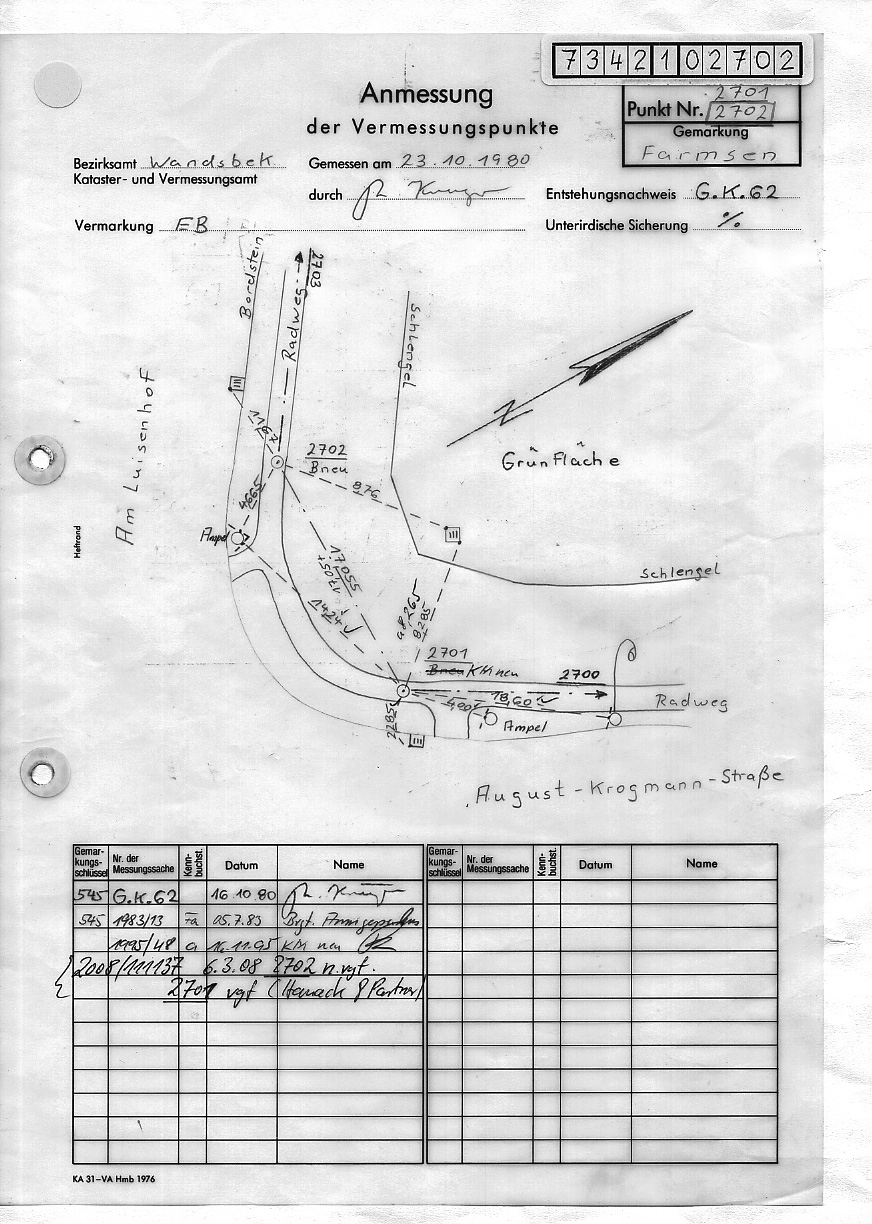 7342102702
Anmessung
der Vermessungspunkte
2701
Punkt Nr. 2702
Gemarkung
Farmsen
Bezirksamt Wandsbek
Kataster- und Vermessungsamt
Gemessen am 23.10.1980
durch
Entstehungsnachweis G.K.62
Vermarkung EB
Unterirdische Sicherung %
Bordstein
Radweg
2703
Schlengel
Am Luisenhof
1167
2702
Bneu
Grünfläche
876
4665
Ampel
Heftrand
17055
17054
1424
a 8,265
8285
Schlengel
2701
Bneu KM neu
2700
18,60
420
Radweg
Ampel
2285
August-Krogmann-Straße
Gemar-
kungs-
schlüssel
Nr. der
Messungssache
Kenn-
buchst.
Datum
Name
Gemar-
kungs-
schlüssel
Nr. der
Messungssache
Kenn-
buchst.
Datum
Name
545 G.K.62 16.10.80
545 1983/13 Fa 05.7.83
1995/48 a 16.11.95 KM neu
2008/111137 6.3.08 2702 n.vgf.
2701 vgf (Hanack & Partner)
KA 31–VA Hmb 1976